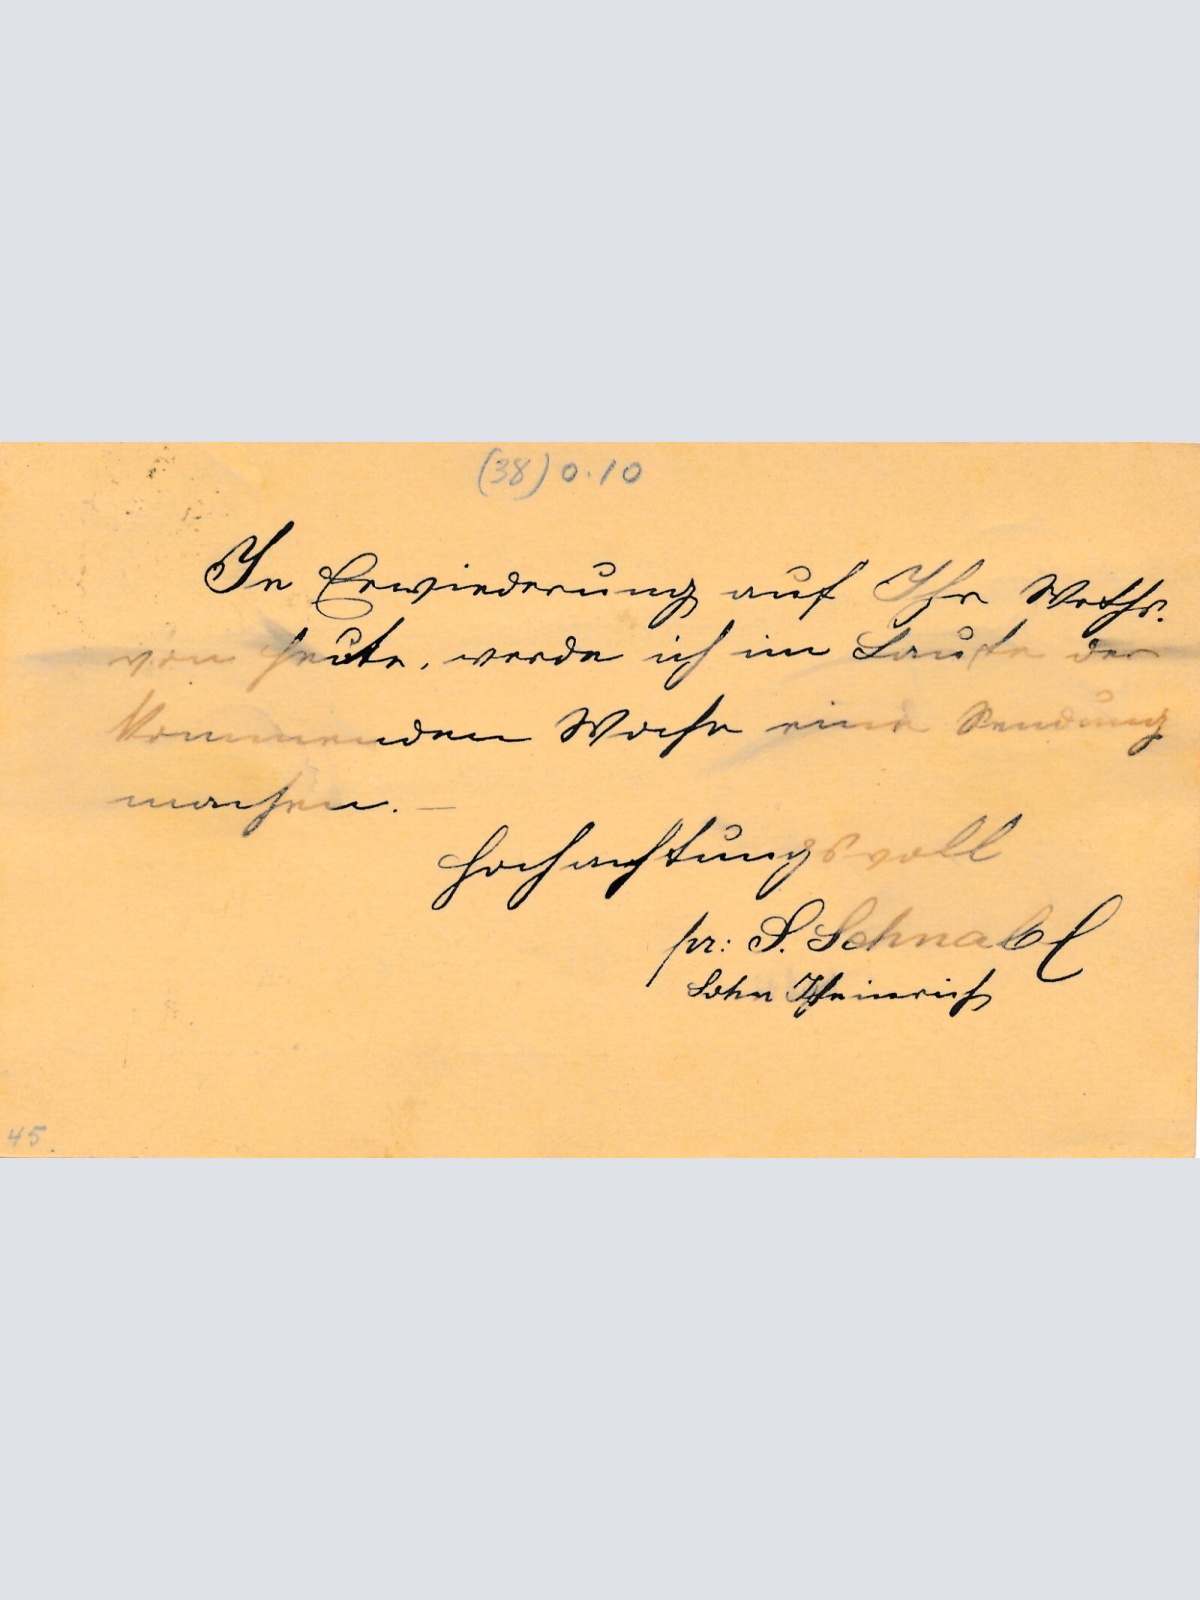 (38) 0.10
In Erwiederung auf Ihr Werths.
von heute, werde ich im Laufe der
kommenden Woche eine Sendung
machen. —
Hochachtungsvoll
pr: S. Schnabl
Sohn Heinrich
45.